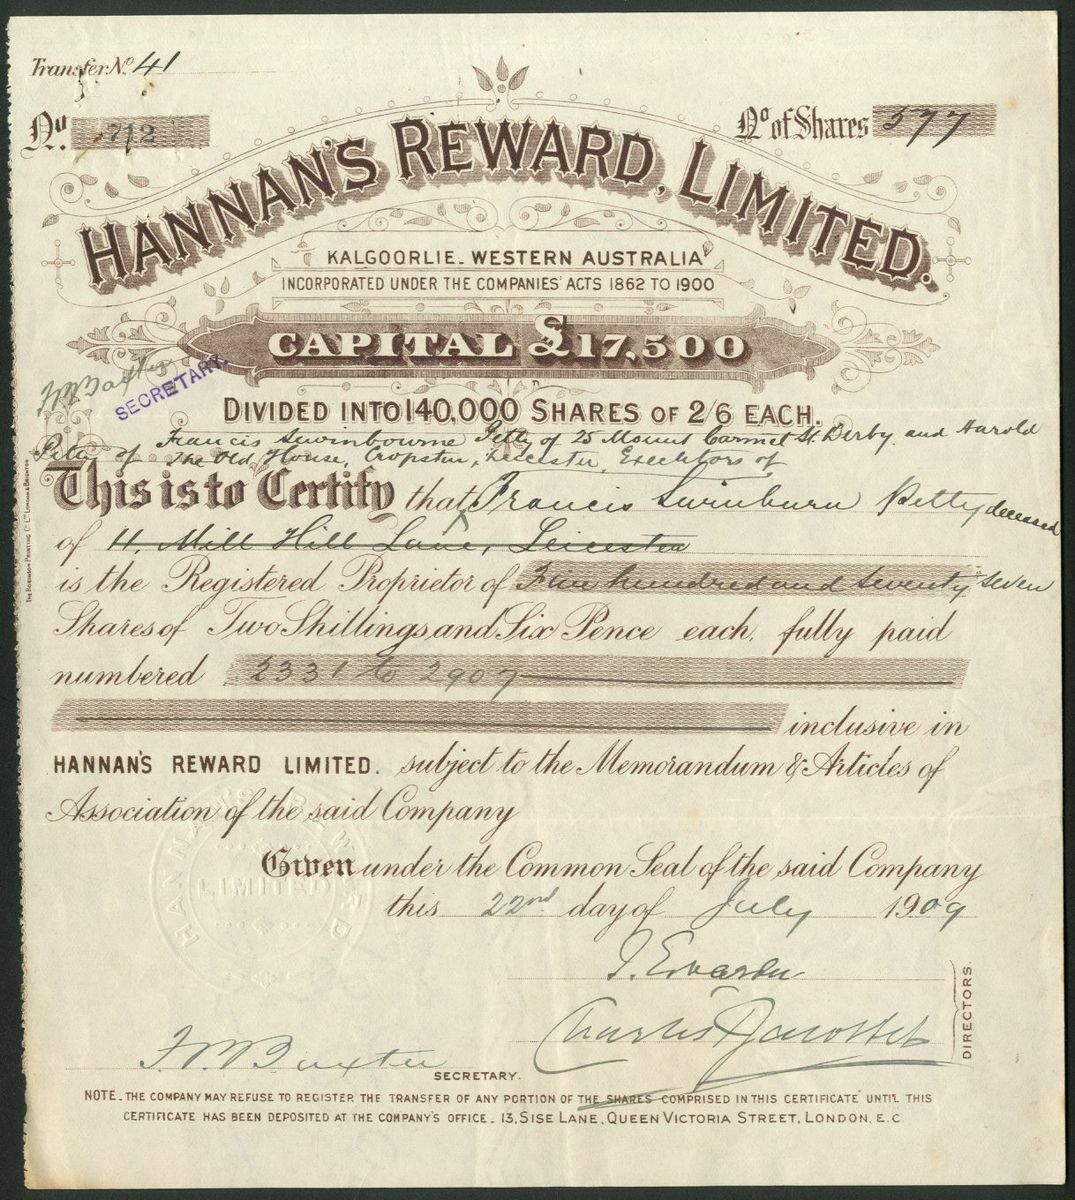 Transfer No 41
No. 712
No of Shares 577
HANNAN'S REWARD, LIMITED.
KALGOORLIE. WESTERN AUSTRALIA
INCORPORATED UNDER THE COMPANIES' ACTS 1862 TO 1900
CAPITAL £17,500
DIVIDED INTO 140,000 SHARES OF 2/6 EACH.
F W Baxter
SECRETARY.
Francis Swinbourne Petty of 25 Mount Carmel St Derby and Harold
Petty of The Old House, Cropston, Leicester, Executors of
This is to Certify that Francis Swinburn Petty deceased
of 4, Mill Hill Lane, Leicester
is the Registered Proprietor of Five hundred and seventy seven
Shares of Two Shillings and Six Pence each, fully paid
numbered 2331 to 2907
inclusive in
HANNAN'S REWARD LIMITED. subject to the Memorandum & Articles of
Association of the said Company
HANNAN'S REWARD
LIMITED
Given under the Common Seal of the said Company
this 22nd day of July 1909
DIRECTORS.
F. W. Baxter
SECRETARY.
NOTE. THE COMPANY MAY REFUSE TO REGISTER THE TRANSFER OF ANY PORTION OF THE SHARES COMPRISED IN THIS CERTIFICATE UNTIL THIS
CERTIFICATE HAS BEEN DEPOSITED AT THE COMPANY'S OFFICE. 13, SISE LANE, QUEEN VICTORIA STREET, LONDON, E.C